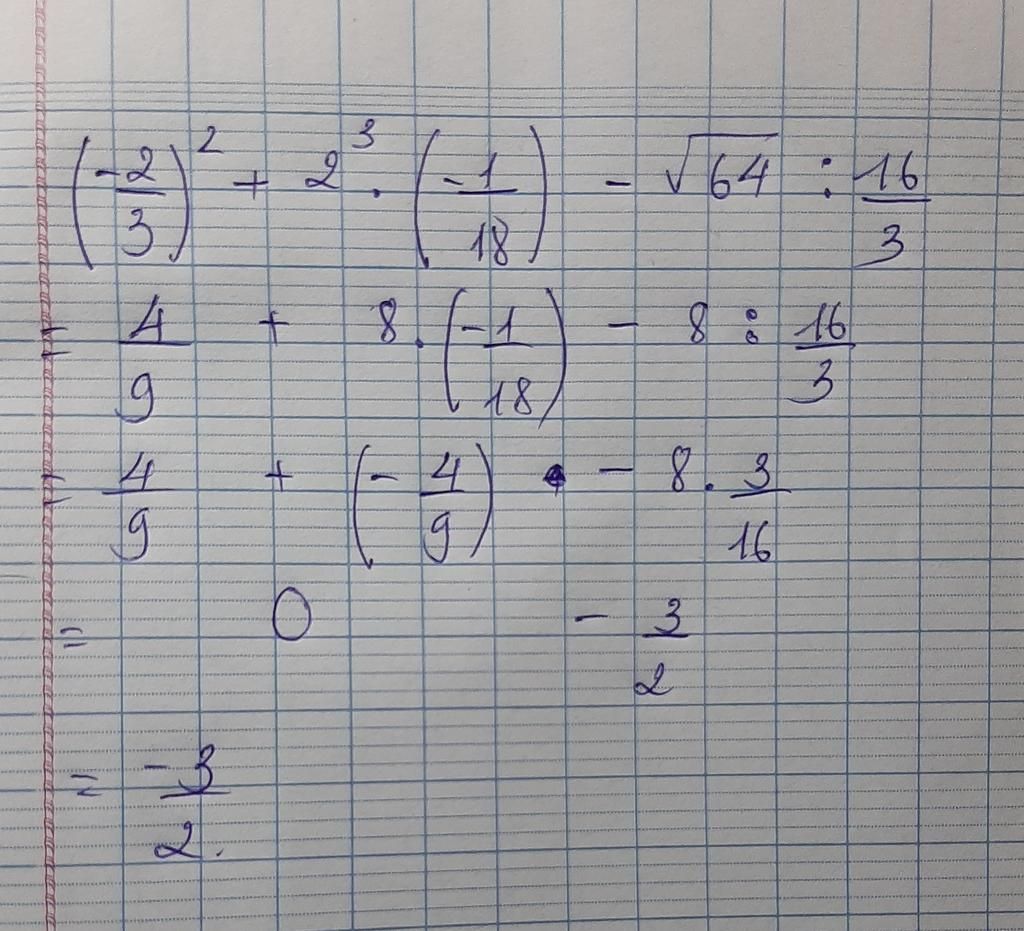 (-2/3)² + 2³ . (-1/18) - √64 : 16/3
= 4/9 + 8 . (-1/18) - 8 : 16/3
= 4/9 + (-4/9) - 8 . 3/16
= 0 - 3/2
= -3/2 .